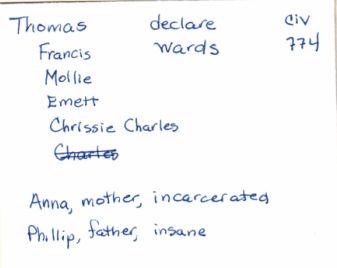 Thomas declare civ
Francis wards 774
Mollie
Emett
Chrissie Charles
Charles
Anna, mother, incarcerated
Phillip, father, insane